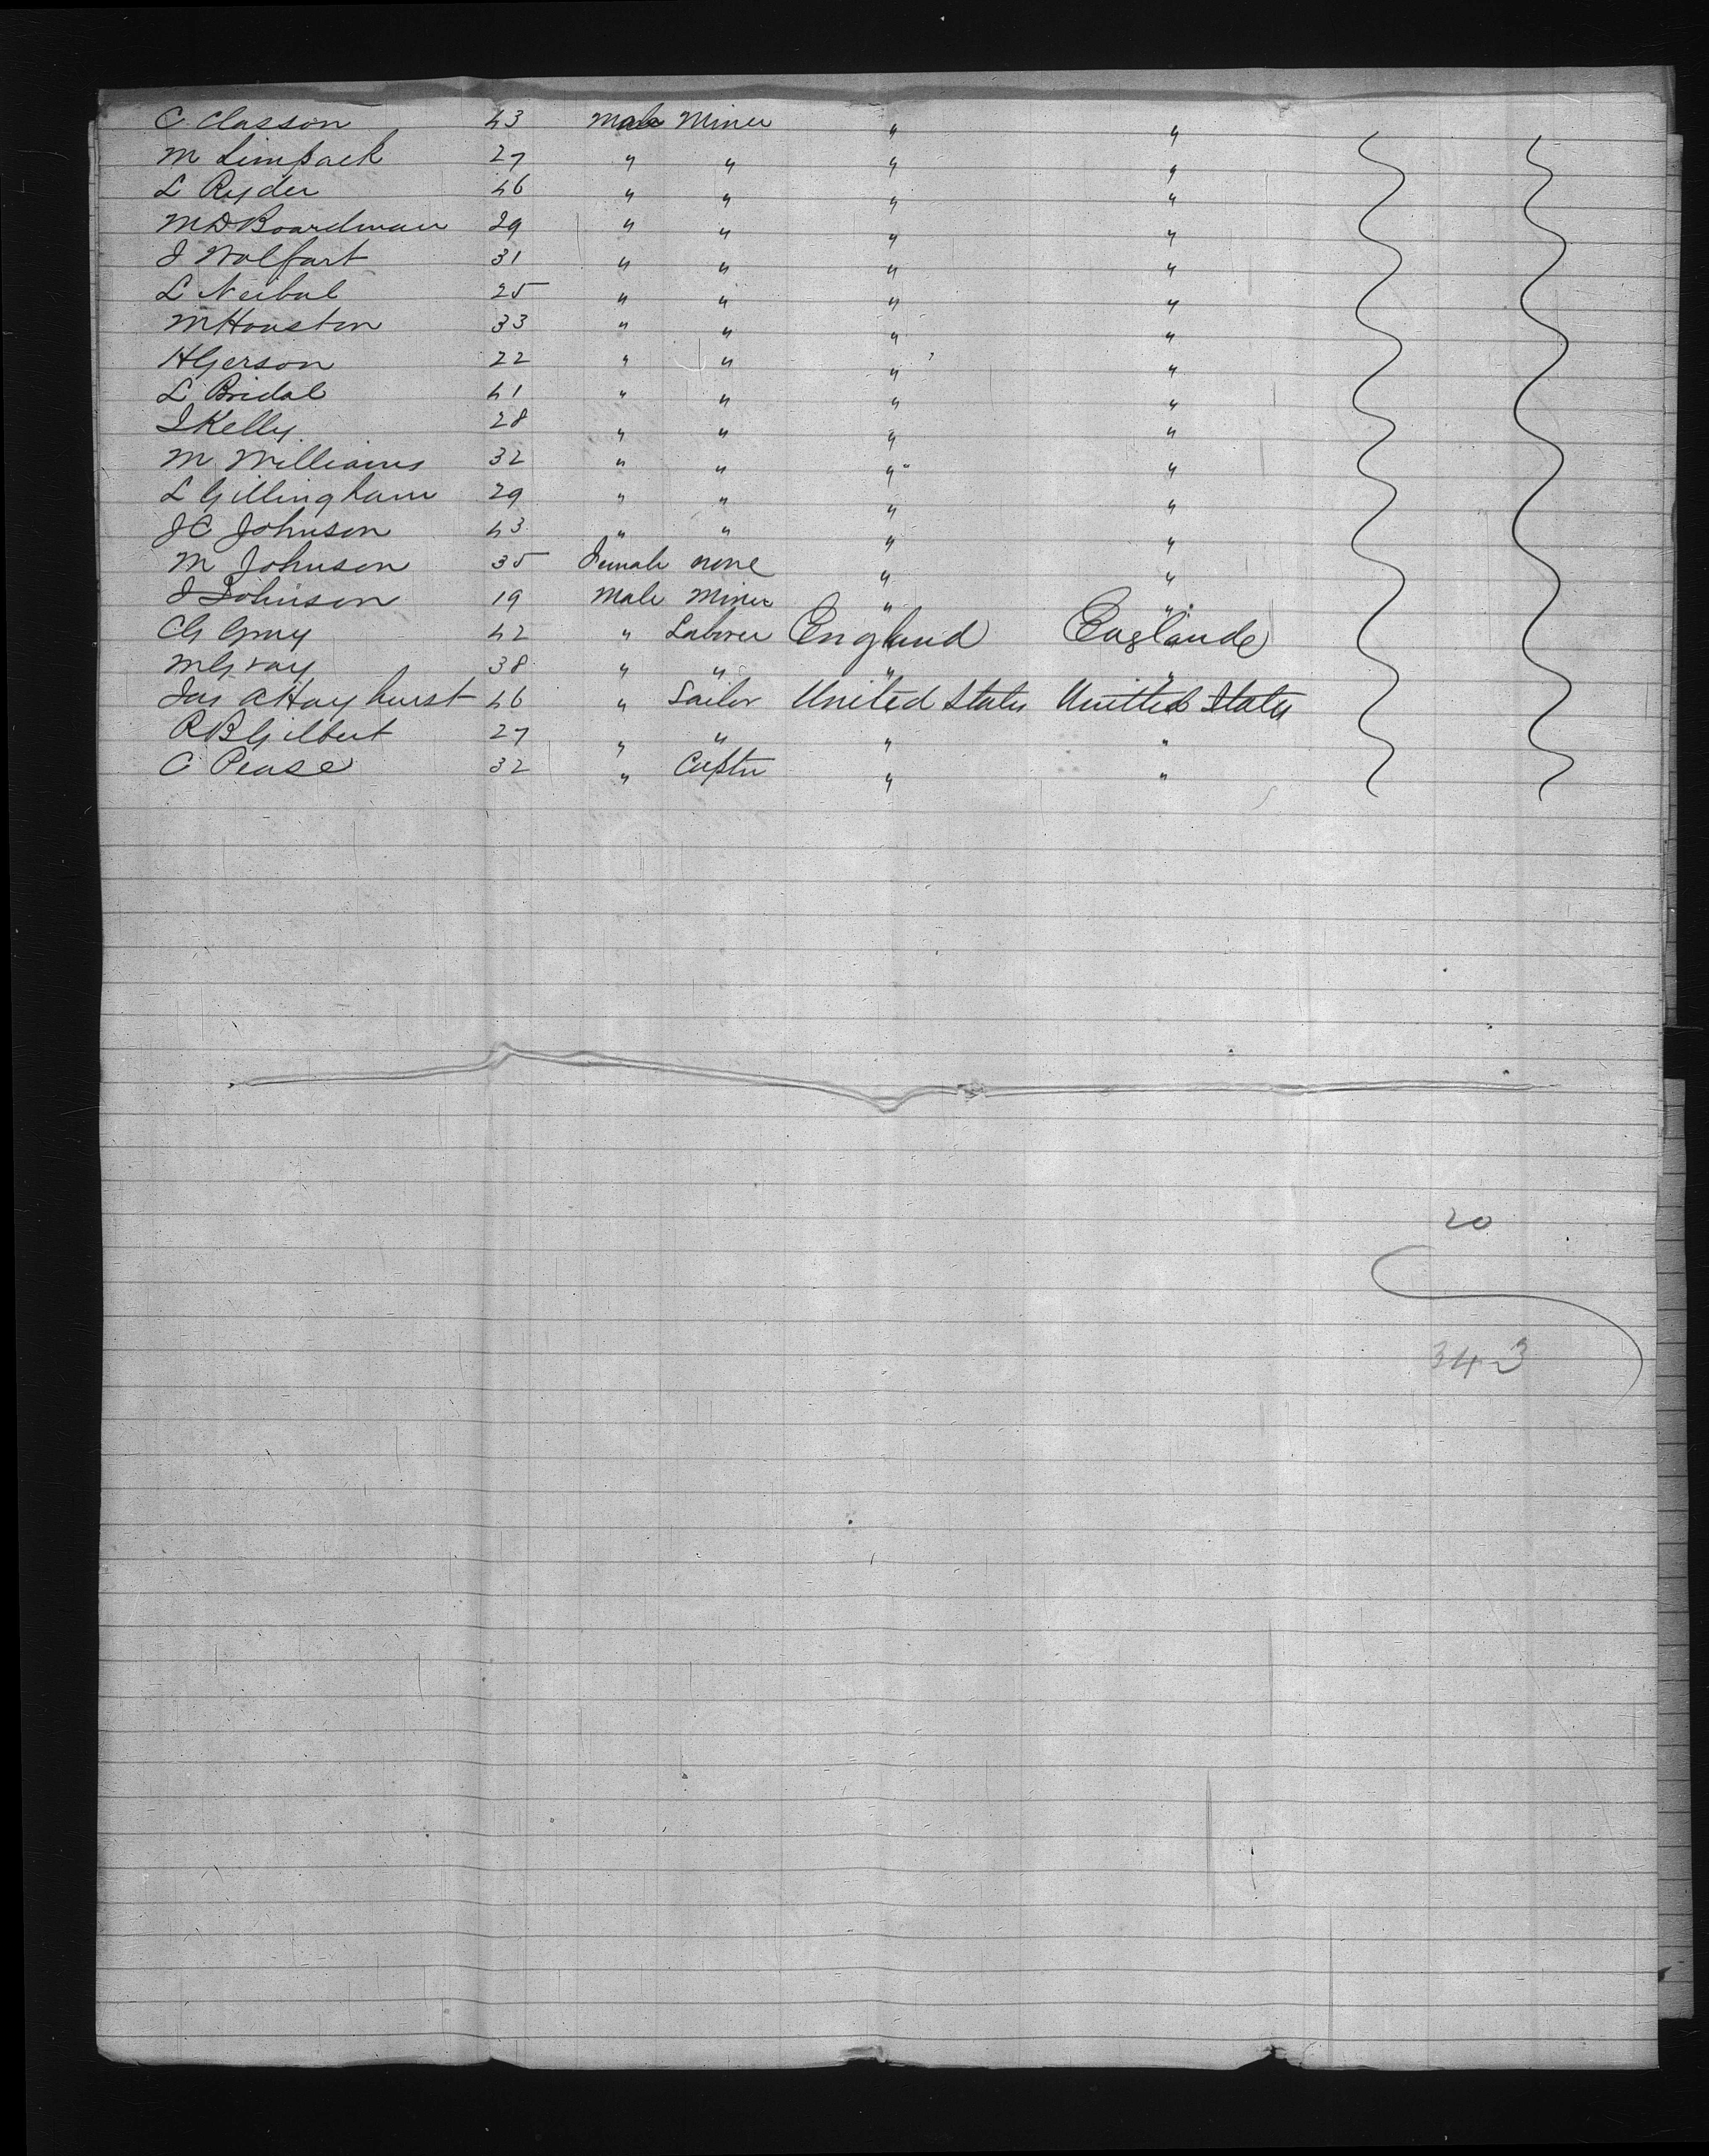 C Classon 43 Male Miner " "
M Limpack 27 " " " "
L Ryder 46 " " " "
M D Boardman 29 " " " "
J Wolfart 31 " " " "
L Neibal 25 " " " "
M Houston 33 " " " "
H Gerson 22 " " " "
L Bridal 41 " " " "
J Kelly 28 " " " "
M Williams 32 " " " "
L Gillingham 29 " " " "
J C Johnson 43 " " " "
M Johnson 35 Female none " "
J Johnson 19 Male Miner " "
C G Gray 42 " Laborer England England
M Gray 38 " " " "
Jas A Hayhurst 46 " Sailor United States United States
R B Gilbert 27 " " " "
C Pease 32 " Captn " "
20
343